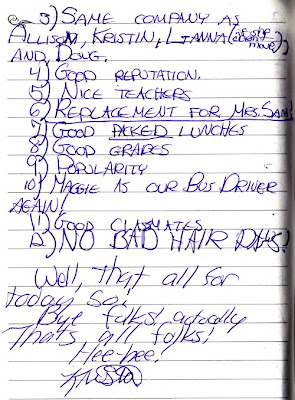 3) SAME COMPANY AS
ALLISON, KRISTIN, LIANNA (if she
doesn't move),
AND DOUG.
4) GOOD REPUTATION.
5) NICE TEACHERS
6) REPLACEMENT FOR MRS. SAM!
7) GOOD PACKED LUNCHES
8) GOOD GRADES
9) POPULARITY
10) MAGGIE AS OUR BUS DRIVER
AGAIN!
11) GOOD CLASSMATES
12) NO BAD HAIR DAYS!
Well, that all for
today so,
Bye folks! actually
Thats all folks!
Hee-hee!